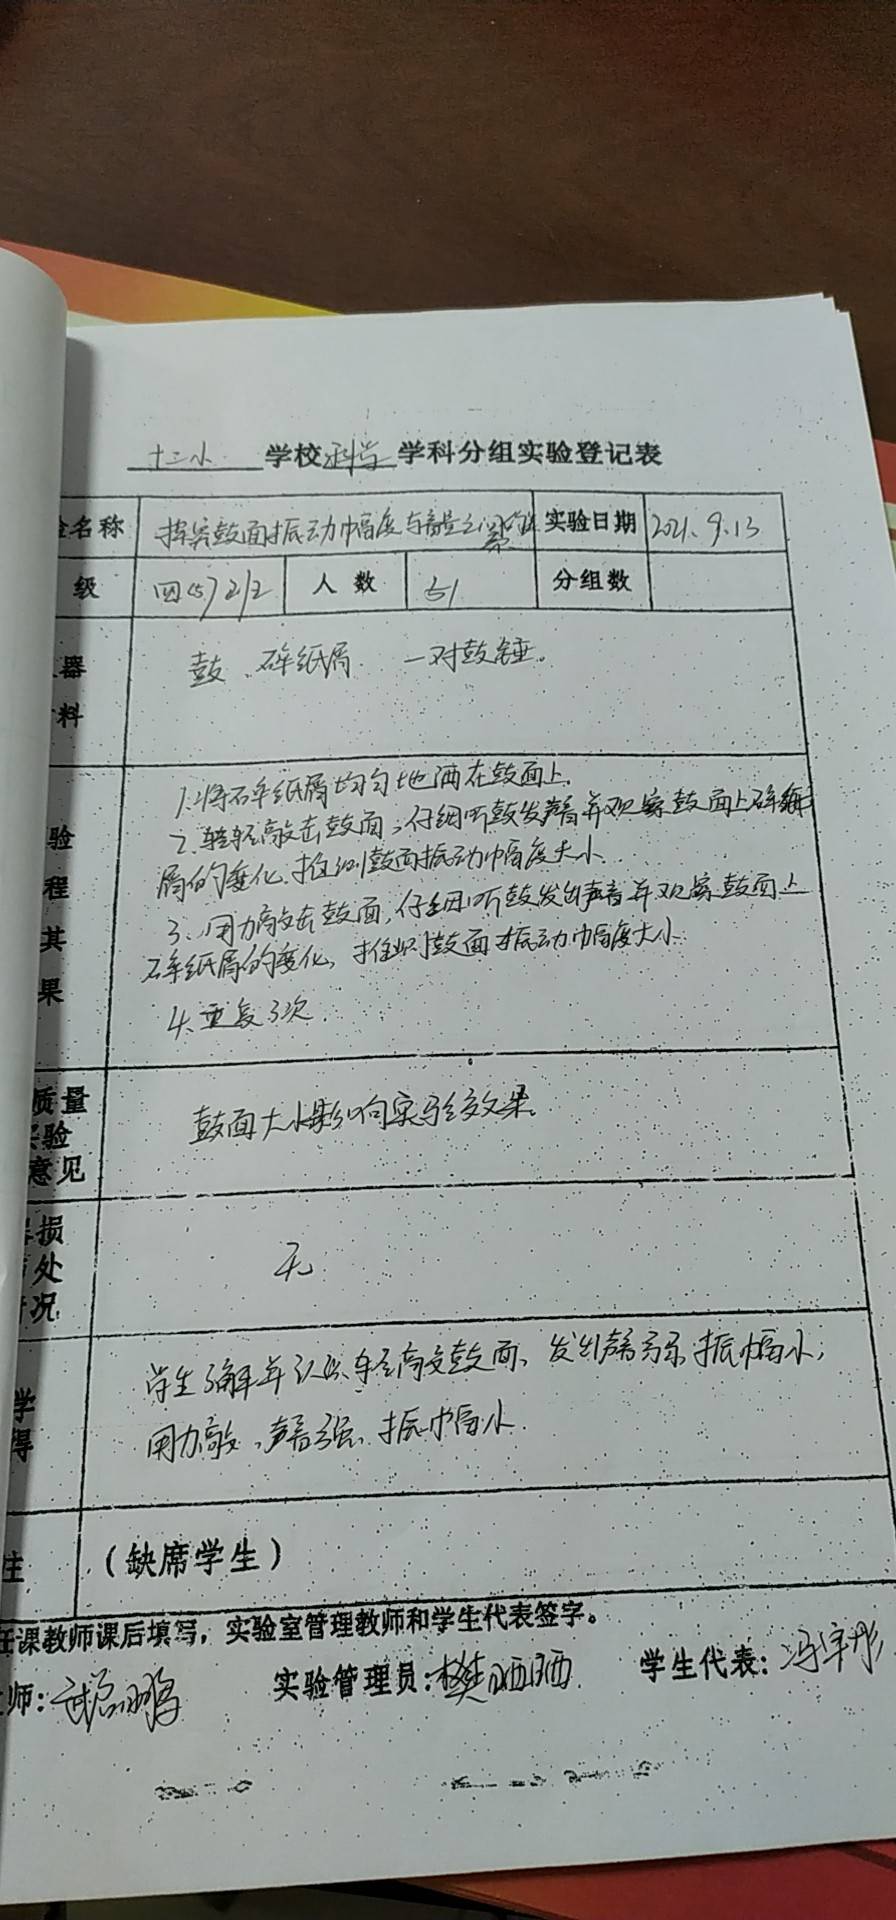 十二小 学校科学学科分组实验登记表
名称 探究鼓面振动幅度与音量之间 实验日期 2021.9.13
级 四(5) 人数 51 分组数
器 鼓、碎纸屑、一对鼓锤。
料
1.将碎纸屑均匀地洒在鼓面上.
验 2.轻轻敲击鼓面,仔细听鼓发声音并观察鼓面上碎纸
屑的变化.推测鼓面振动幅度大小.
程
其 3.用力敲击鼓面,仔细听鼓发出声音并观察鼓面上
果 碎纸屑的变化,推测鼓面振动幅度大小.
4.重复3次.
质量
验 鼓面大小影响实验效果。
意见
损
处 无
况
学 学生了解并认识轻敲鼓面、发出声音弱振幅小,
得 用力敲、声音强、振幅小.
注 (缺席学生)
任课教师课后填写,实验室管理教师和学生代表签字。
师: 实验管理员:樊晒晒 学生代表:冯